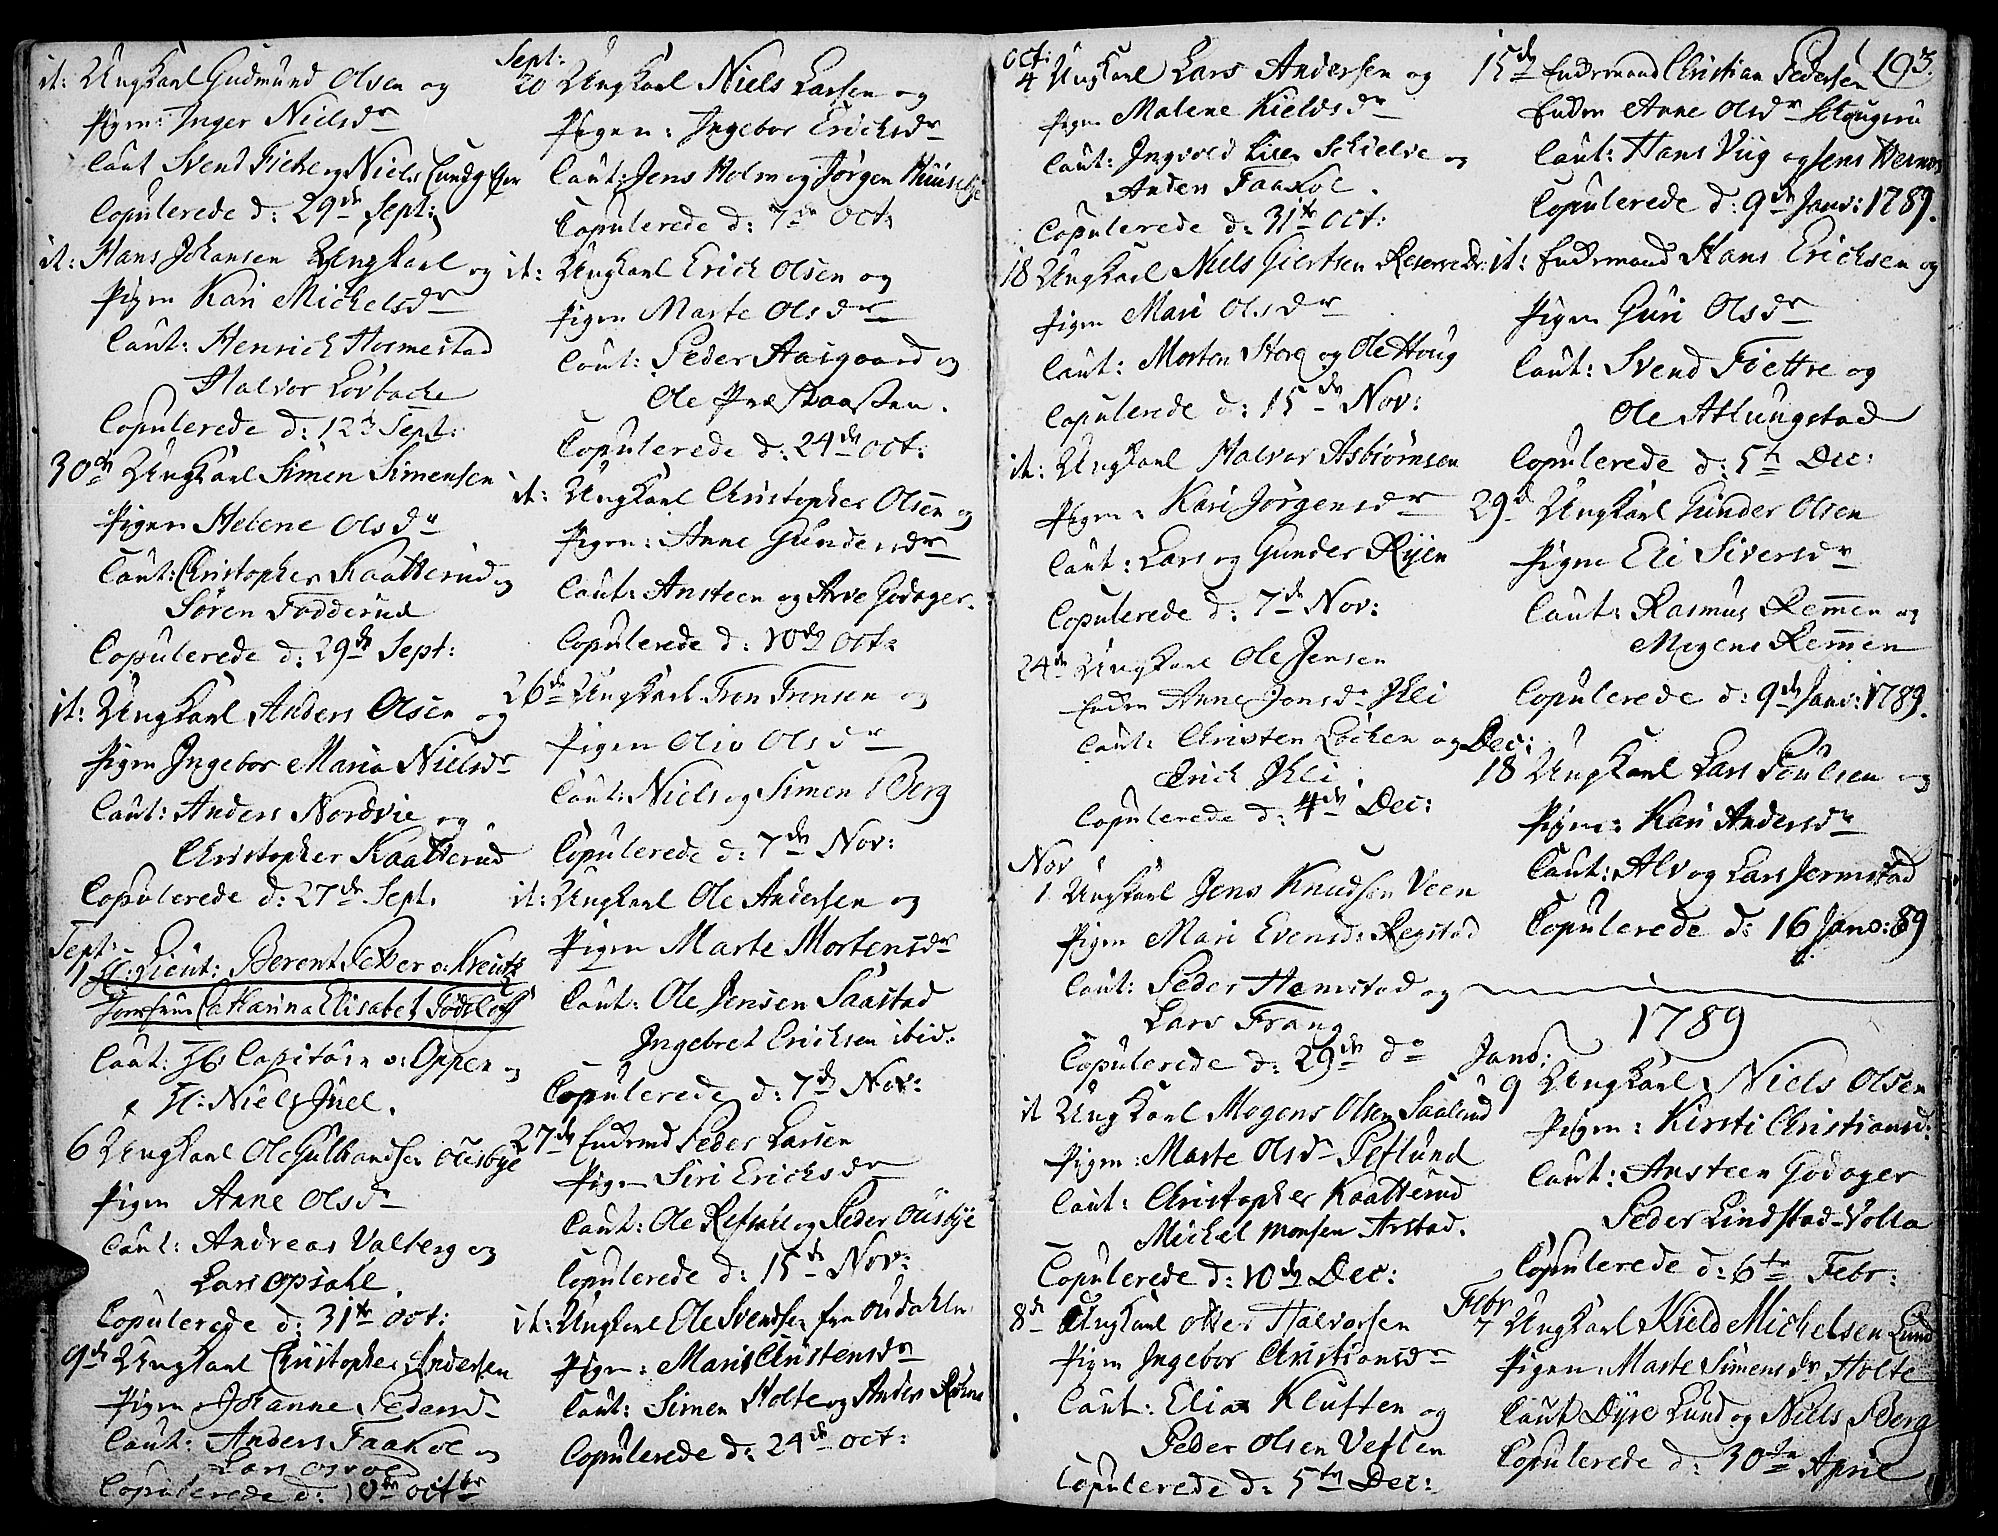 it: Ungkarl Gudmund Olsen og
Pigen: Inger Nielsdr
Caut Svend Fictre og Niels
Copulerede d: 29de Sept:
it: Hans Johansen Ungkarl og
Pigen Kari Michelsdr
Caut: Henrich Hormestad
Halvor Lovbache
Copulerede d: 12te Sept:
30de Ungkarl Simen Simensen
Pigen Helene Olsdr
Caut: Christopher Kaatterud og
Søren Fodderud
Copulerede d: 29de Sept:
it: Ungkarl Anders Olsen og
Pigen Ingebor Maria Nielsdr
Caut: Anders Nordvie og
Christopher Kaatterud
Copulerede d: 27de Sept.
Sept:
1 H: Lieut: Berent Petter v: Kreutz
Jomfrue Catharina Elisabet Fødsløff
Caut: Hr Capitain v: Oppen og
H: Niels Juel.
6 Ungkarl Ole Gulbrandsen Ousbye
Pigen Anne Olsdr
Caut: Andreas Valberg og
Lars Opsahl.
Copulerede d: 31te Oct:
9de Ungkarl Christopher Andersen
Pigen Johanne Pedersdr
Caut: Anders Faakoe og
Lars Osvoe
Copulerede d: 10de octbr
Sept:
20 Ungkarl Niels Larsen og
Pigen: Ingebor Ericksdr
Caut: Jens Holm og Jørgen Huusebye
Copulerede d: 7de Oct:
it: Ungkarl Erich Olsen og
Pigen Marte Olsdr
Caut: Peder Aasgaard og
Ole
Copulerede d: 24de Oct:
it: Ungkarl Christopher Olsen og
Pigen: Anne Gundersdr
Caut: Ansteen og Arve Godager.
Copulerede d: 10de Oct:
26de Ungkarl Fron Fronsen og
Pigen Oliv Olsdr
Caut: Niels og Simen Berg
Copulerede d: 7de Nov:
it: Ungkarl Ole Andersen og
Pigen Marte Mortensdr
Caut: Ole Jensen Saastad
Ingebret Ericksen ibid:
Copulerede d: 7de Nov:
27de Enkemd Peder Larsen
Pigen Siri Ericksdr
Caut: Ole Refsahl og Peder Ousbye
Copulerede d: 15de Nov:
it: Ungkarl Ole Svendsen fra Oudahlen
Pigen: Maris Christensdr
Caut: Simen Holte og Anders Røhne
Copulerede d: 24de Oct:
Oct:
4 Ungkarl Lars Andersen og
Pigen Malene Kieldsdr
Caut: Ingvold Schielve og
Anders Faakoe.
Copulerede d: 31te Oct:
18 Ungkarl Niels Giertsen Reserve Dr:
Pigen Mari Olsdr
Caut: Morten Hore og Ole Houg
Copulerede d: 15de Nov:
it: Ungkarl Halvor Asbiørnsen
Pigen: Kari Jørgensdr
Caut: Lars og Gunder Ryen
Copulerede d: 7de Nov:
24de Ungkarl Ole Jensen
Enken Anne Jonsdr Ihli
Caut: Christen Løchen og
Erich Ihli.
Copulerede d: 4de Dec:
Nov
1 Ungkarl Jens Knudsen Veen
Pigen Mari Evensdr Regstad
Caut: Peder Hamstad og
Lars Frang
Copulerede d: 29de do
it Ungkarl Mogens Olsen Saalund
Pigen: Marte Olsdr Peflund
Caut: Christopher Kaatterud
Michel Monsen Arstad.
Copulerede d: 10de Dec:
8de Ungkarl Oller Halvorsen
Pigen Ingebor Christiansdr
Caut: Elias Kluften og
Peder Olsen Veflen
Copulerede d: 5te Dec:
193.
15de Enkemand Christian Pedersen
Enken Anne Olsdr
Caut: Hans Viig og Jens
Copulerede d: 9de Janv: 1789.
it: Enkemand Hans Ericksen og
Pigen Guri Olsdr
Caut: Svend Fiettre og
Ole Atlungstad
Copulerede d: 5te Dec:
29de Ungkarl Gunder Olsen
Pigen Eli Siversdr
Caut: Rasmus Remmen og
Mogens Remmen
Copulerede d: 9de Janv: 1789.
Dec:
18 Ungkarl Lars Poulsen og
Pigen: Kari Andersdr
Caut: Alv og Lars Jermstad
Copulerede d: 16 Janv: 89
1789
Janv:
9 Ungkarl Niels Olsen
Pigen: Kirsti Christiansd:
Caut: Ansteen Godager
Peder Lindstad-Volla
Copulerede d: 6te Febr:
Febr
7 Ungkarl Kield Michelsen Lund
Pigen Marte Simensdr Holte
Caut Dyre Lund og Niels Berg
Copulerede d: 30te April